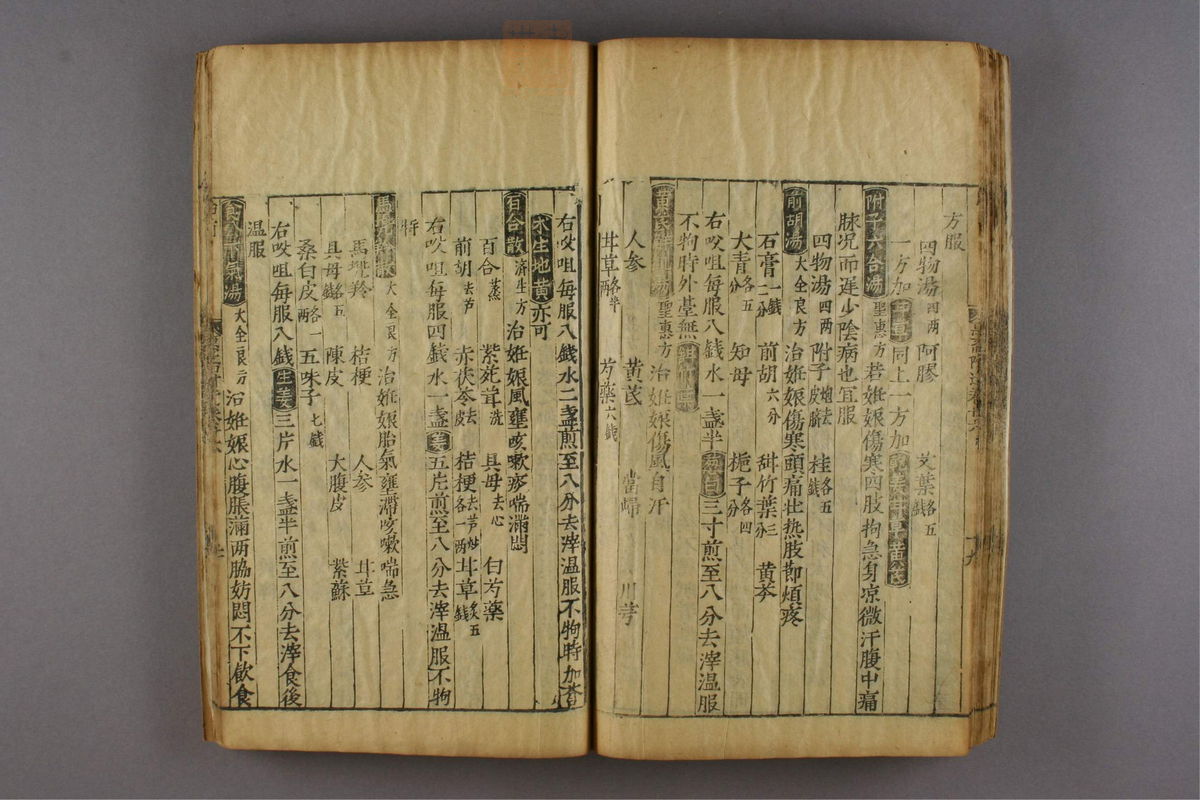 方服
四物湯四两 阿膠 艾葉各五錢
一方加甘草同上一方加
附子六合湯聖惠方若姙娠傷寒四肢拘急身凉微汗腹中痛
脉况而遅少陰病也宜服
四物湯四两 附子炮去皮臍 桂各五錢
前胡湯大全良方治姙娠傷寒頭痛壮热肢節煩疼
石膏一錢二分 前胡六分 甜竹葉三分 黄芩
大青各五分 知母 梔子各四分
右㕮咀每服八錢水一盞半葱白三寸煎至八分去滓温服
不拘時外臺無
聖惠方治姙娠傷風自汗
人参 黄芪 當歸 川芎
甘草各半两 芍藥六錢
右㕮咀每服八錢水二盞煎至八分去滓温服不拘時加
生地黄亦可
百合散濟生方治姙娠風壅咳嗽痰喘滿悶
百合蒸 紫菀茸洗 貝母去心 白芍藥
前胡去芦 赤茯苓去皮 桔梗去芦炒各一两 甘草炙五錢
右㕮咀每服四錢水一盞姜五片煎至八分去滓温服不拘
時
馬兜鈴散大全良方治姙娠胎氣壅滯咳嗽喘急
馬兜羚 桔梗 人参 甘草
貝母各五錢 陳皮 大腹皮 紫蘇
桑白皮各一两 五味子七錢
右㕮咀每服八錢生姜三片水一盞半煎至八分去滓食後
温服
氣湯大全良方治姙娠心腹脹滿两脇妨悶不下飲食